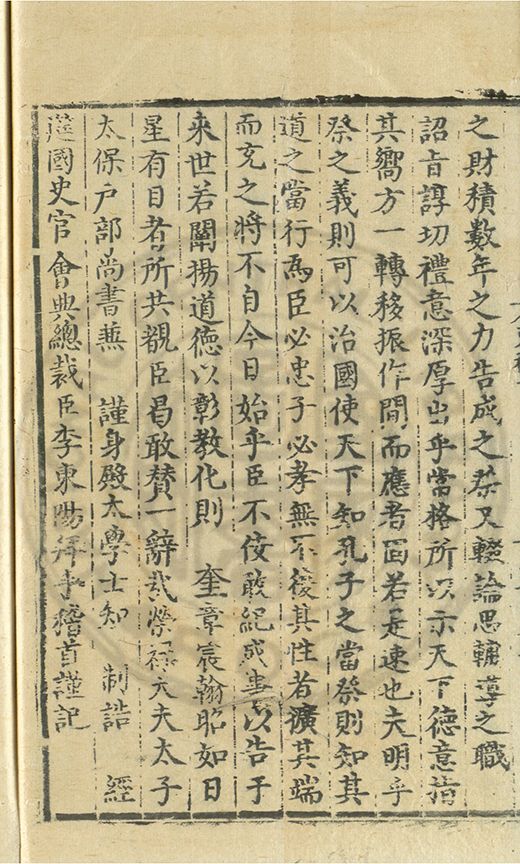 之財積數年之力告成之祭又輟論思輔導之職
詔旨諄切禮意深厚出乎常格所以示天下德意指
其嚮方一轉移振作間而應者固若是速也夫明乎
祭之義則可以治國使天下知孔子之當祭則知其
道之當行為臣必忠子必孝無不復其性者獷其端
而充之將不自今日始乎臣不佞敢紀成事以告于
來世若闡揚道德以彰教化則 奎章宸翰昭如日
星有目者所共覩臣曷敢贊一辭哉榮祿大夫太子
太保戶部尚書蕪 謹身殿大學士知 制誥 經
筵國史官 會典總裁臣李東陽拜手稽首謹記